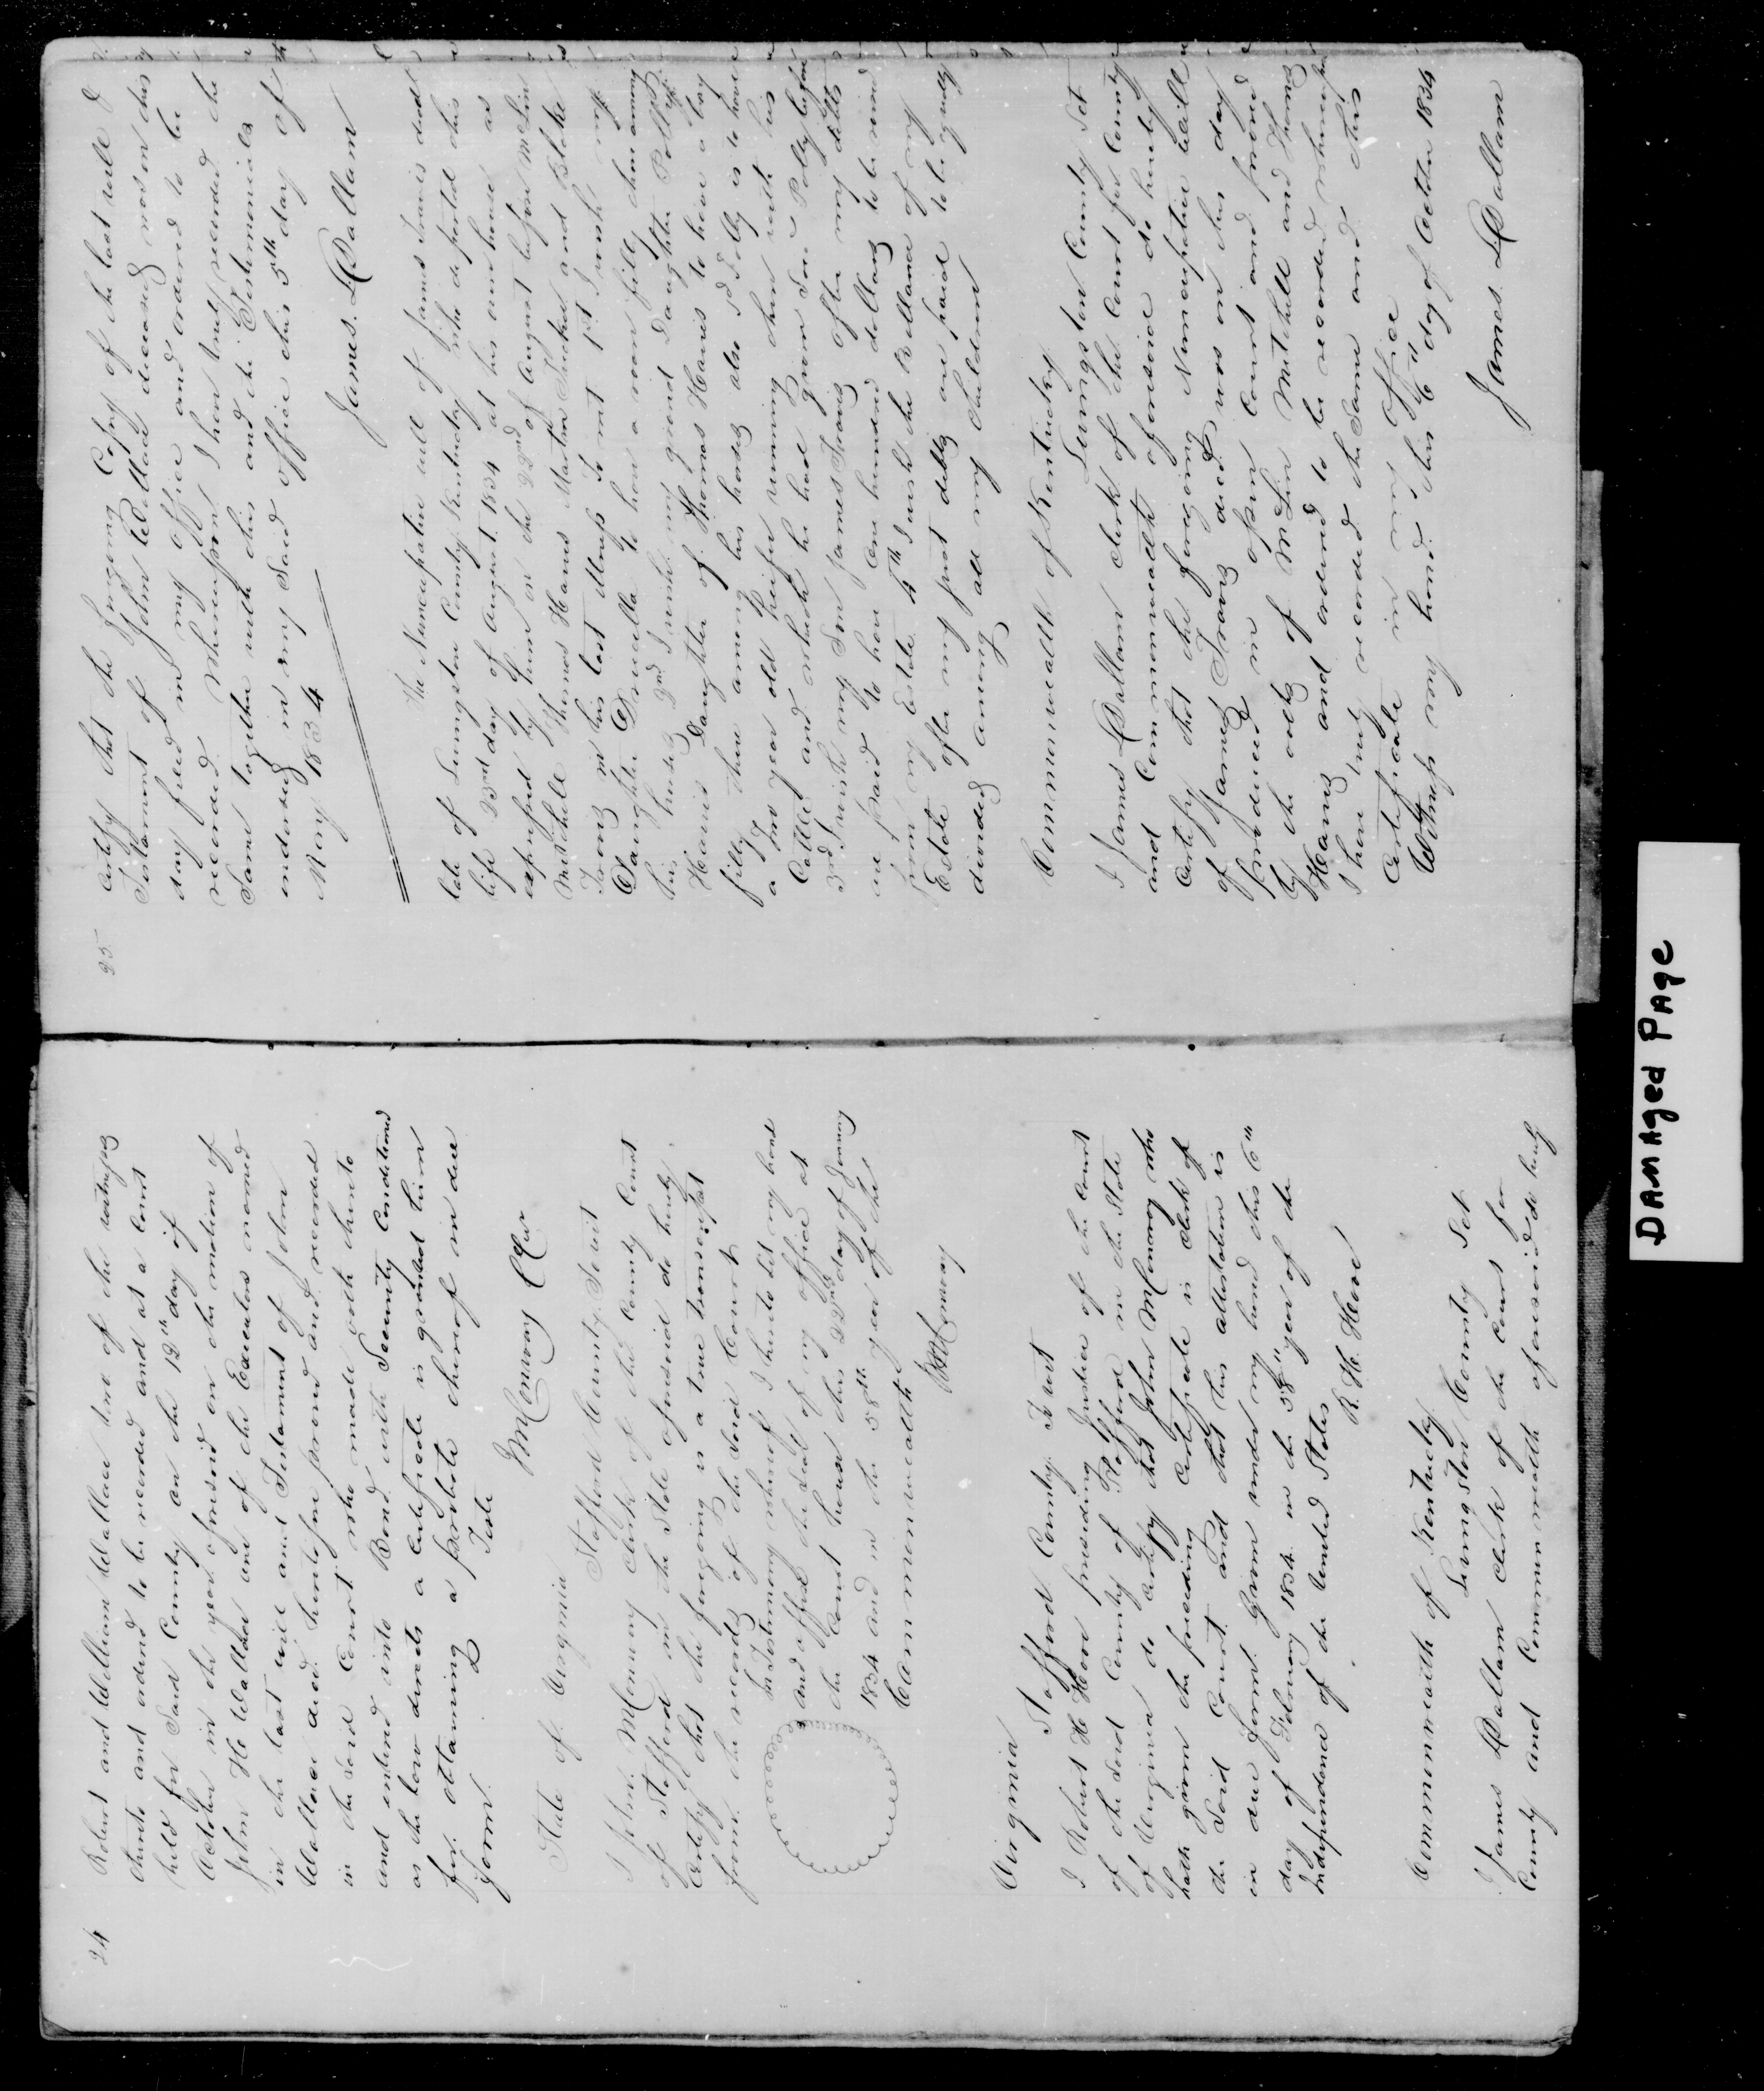 24
Robert and William Wallace two of the witnesses
thereto and ordered to be recorded and at a Court
held for Said County on the 12th day of
October in the year aforesaid on the motion of
John H Wallace one of the Executors named
in the last will and Testament of John
Wallace decd. heretofore proved and recorded
in the said Court who made oath thereto
and entered into Bond with Security Conditioned
as the law directs a Certificate is granted him
for obtaining a probate thereof in due
form.
Teste
J M Conway CCur
State of Virginia
Stafford County Towit
I John M Conway Clerk of the County Court
of Stafford in the State aforesaid do hereby
Certify that the foregoing is a true transcript
from the records of the said Court
In Testimony whereof I hereto set my hand
and affixed the seal of my office at
the Court house this 22nd day of January
1834 and in the 58th year of the
Commonwealth
JM Conway
Virginia
Stafford County Towit
I Robert H Hooe presiding Justice of the Court
of the said County of Stafford in the State
of Virginia do Certify that John M Conway who
hath given the preceding Certificate is Clerk of
the Said Court and that his attestation is
in due form. Given under my hand this 6th
day of February 1834 in the 58th year of the
Independence of the United States
R. H. Hooe
Commonwealth of Kentucky
Livingston County Set
I James L Dallam Clerk of the Court for
County and Commonwealth aforesaid do hereby
25
Certify that the foregoing Copy of the last will &
Testament of John Wallace deceased was on this
day filed in my office and ordered to be
recorded Whereupon I have truly recorded the
Same together with this and the Testimonials
endorsed in my Said office this 5th day of
May 1834
James L Dallam
The Nuncupative will of James Travis decd
late of Livingston County Kentucky who departed this
life 23rd day of August 1834 at his own house as
expressed by him on the 22nd of August before McLin
Mitchell Thomas Harris Martin Tucker and Blake
Travis in his last illness To wit 1st I wish my
Daughter Drucilla to have a roan filly then among
his horses 2nd I wish my grand Daughter Polly
Harris Daughter of Thomas Harris to have a bay
filly then among his horses also Polly is to have
a two year old heifer running then with his
Cattle and which he had given Polly before
3rd I wish my Son James Travis after my debts
are paid to have one hundred dollars to be raised
from my Estate 4th I wish the Ballance of my
Estate after my just debts are paid to be equally
divided among all my children
Commonwealth of Kentucky
Livingston County Set
I James L Dallam clerk of the Court for County
and Commonwealth aforesaid do hereby
Certify that the foregoing Nuncupative will
of James Travis decd was on this day
produced in open Court and proved
by the oaths of McLin Mitchell and Thomas
Harris and ordered to be recorded whereupon
I have truly recorded the Same and this
Certificate in my office
Witness my hand this 6th day of October 1834
James L Dallam
DAMAged PAge